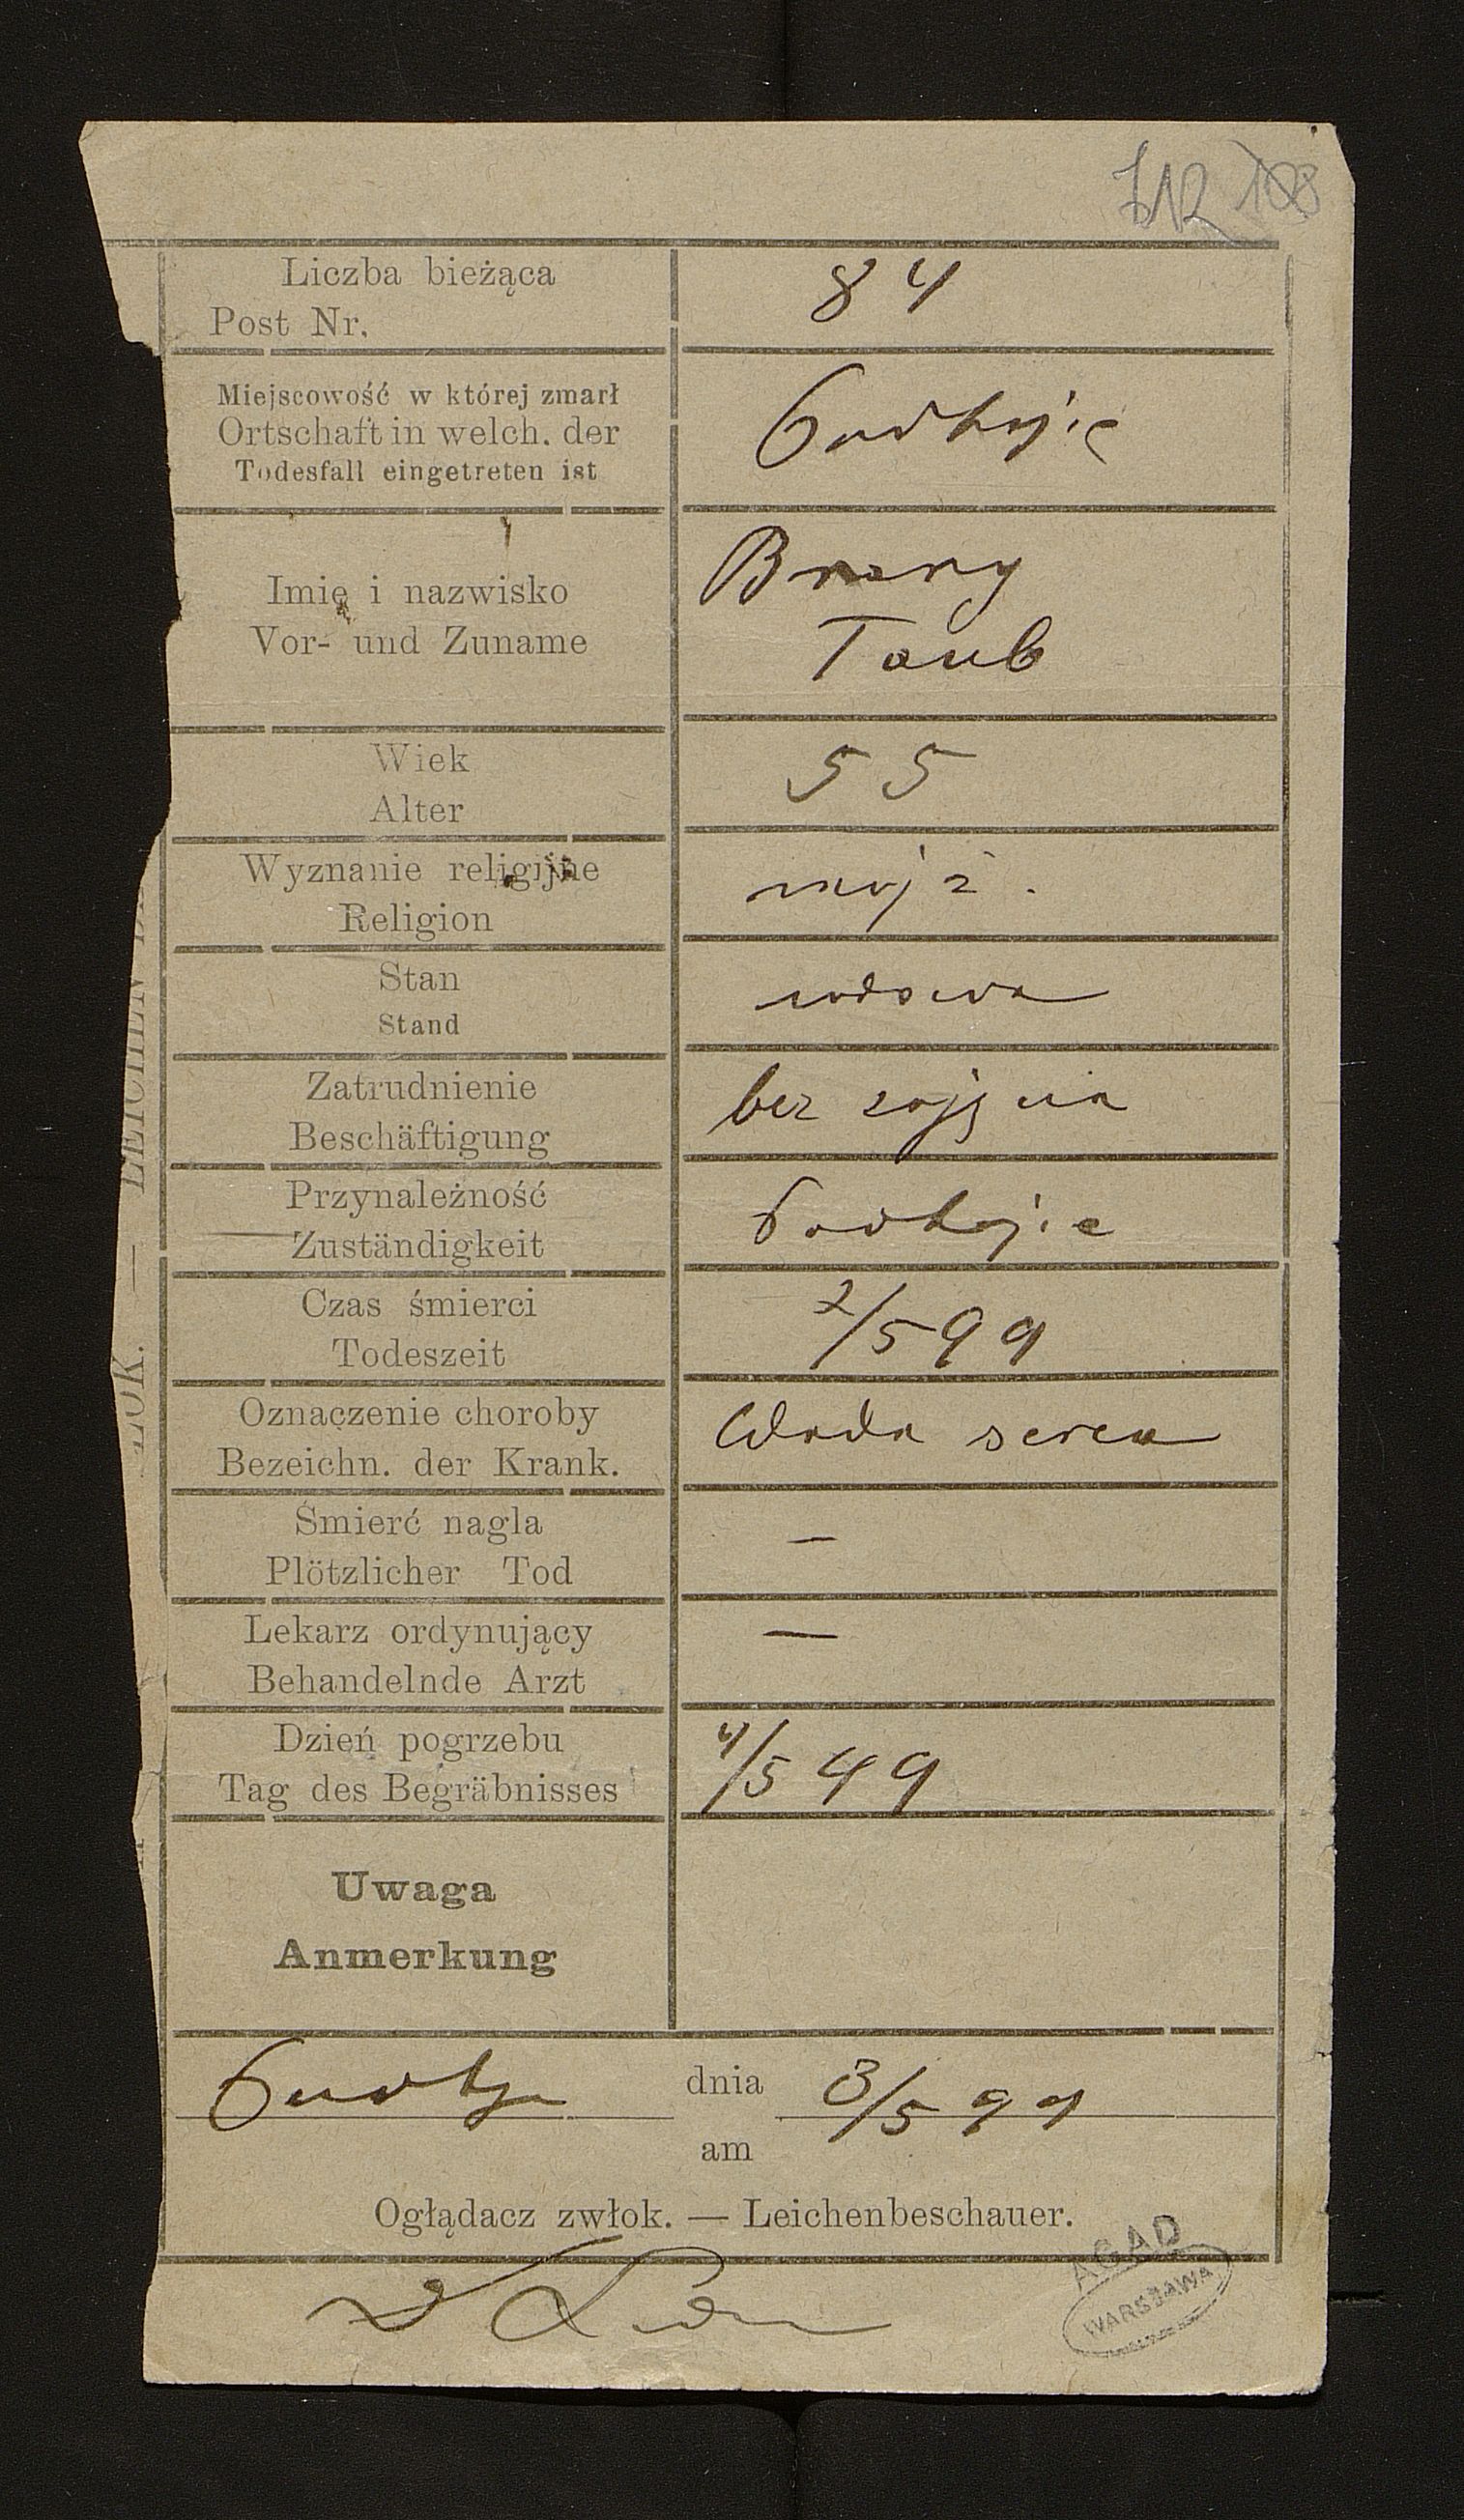 112 108
Liczba bieżąca
Post Nr.
84
Miejscowość w której zmarł
Ortschaft in welch. der
Todesfall eingetreten ist
Podhajce
Imię i nazwisko
Vor- und Zuname
Taub
Wiek
Alter
55
Wyznanie religijne
Religion
mojż.
Stan
Stand
wdowa
Zatrudnienie
Beschäftigung
bez zajęcia
Przynależność
Zuständigkeit
Podhajce
Czas śmierci
Todeszeit
2/5 99
Oznaczenie choroby
Bezeichn. der Krank.
Wada serca
Śmierć nagla
Plötzlicher Tod
—
Lekarz ordynujący
Behandelnde Arzt
—
Dzień pogrzebu
Tag des Begräbnisses
4/5 99
Uwaga
Anmerkung
dnia 3/5 99
am
Oglądacz zwłok. — Leichenbeschauer.
AGAD
WARSZAWA
ZŁOK. — LEICHEN